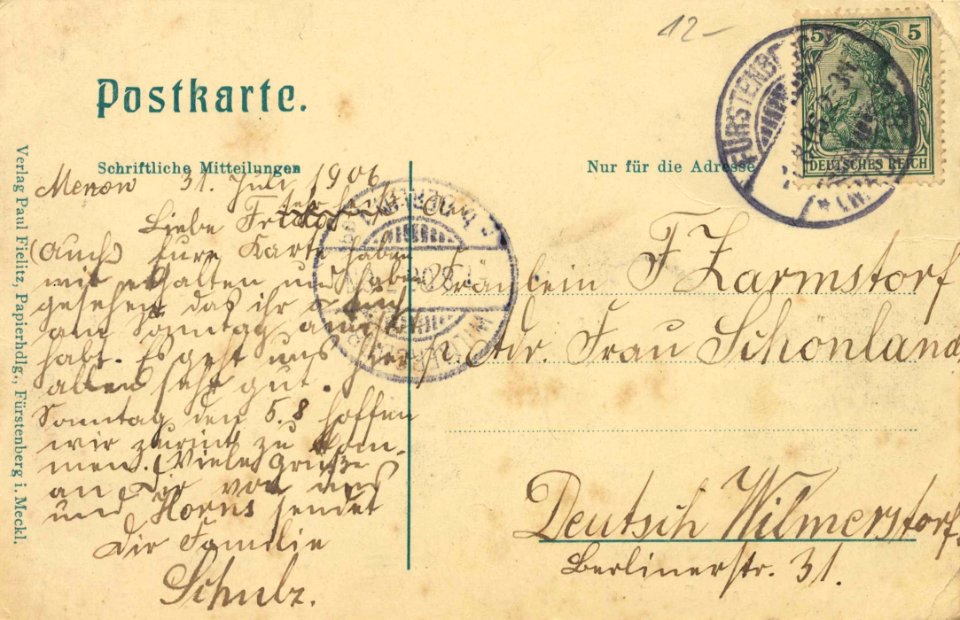 12-
Postkarte.
Schriftliche Mitteilungen
Nur für die Adresse
5 5
DEUTSCHES REICH
FÜRSTENBERG
Verlag Paul Fielitz, Papierhdlg., Fürstenberg i. Meckl.
Menow 31. Juli 1906
Liebe
(Auch) Eure Karte haben
wir erhalten und haben
gesehen das ihr
am Sonntag
habt. Es geht uns hier
allen sehr gut.
Sonntag den 5.8 hoffen
wir zurück zu kom-
men. Viele Grüße
an Dir von uns
und Horns sendet
Dir Familie
Schulz.
Fräulein F Zarmstorf
p. Adr. Frau Schönland
Deutsch Wilmerstorf.
Berlinerstr. 31.